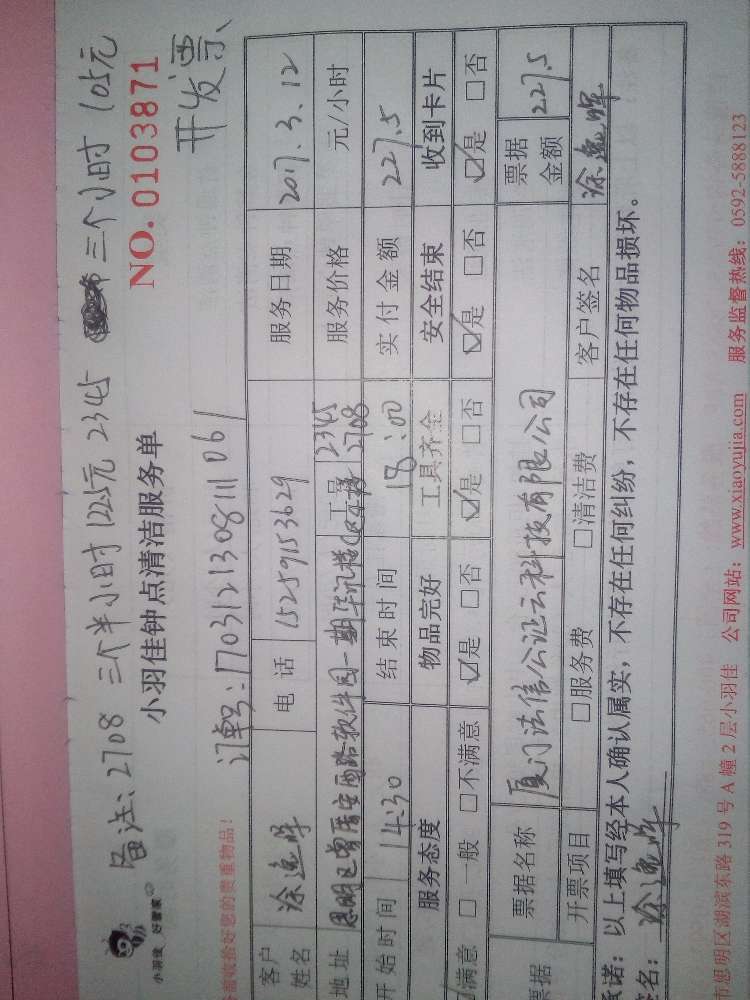 备注：2708 三个半小时 122.5元 2345 三个小时 105元
小羽佳 好管家
小羽佳钟点清洁服务单 NO.0103871
开发票
收拾好您的贵重物品！ 订单号：1703121308111061
客户姓名 徐逸晖 电话 15259153629 服务日期 2017.3.12
地址 思明区曾厝安西路软件园一期华讯楼 工号 2345 2708 服务价格 元/小时
开始时间 14:30 结束时间 18:00 实付金额 227.5
服务态度 物品完好 工具齐全 安全结束 收到卡片
满意 □一般 □不满意 ☑是 □否 ☑是 □否 ☑是 □否 ☑是 □否
票据 票据名称 厦门法信公证云科技有限公司 票据金额 227.5
开票项目 □服务费 □清洁费 客户签名 徐逸晖
承诺：以上填写经本人确认属实，不存在任何纠纷，不存在任何物品损坏。
签名：徐逸晖
市思明区湖滨东路319号A幢2层小羽佳 公司网站：www.xiaoyujia.com 服务监督热线：0592-5888123